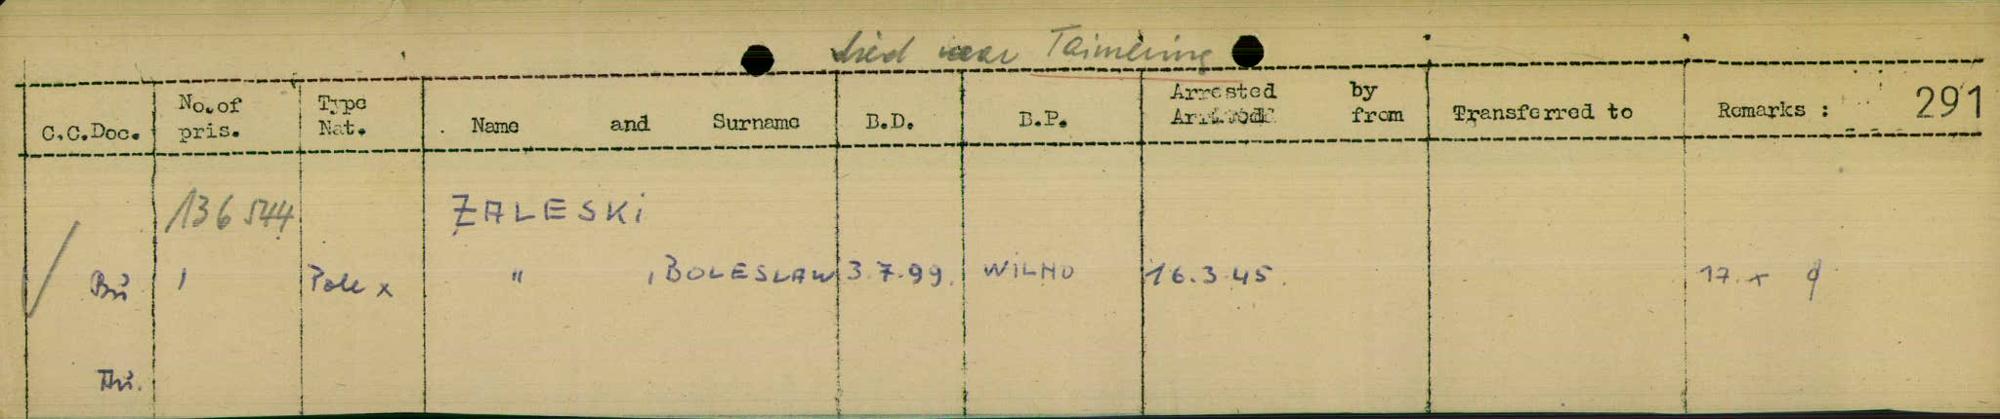 died near Taimering
C.C.Doc. No. of pris. Type Nat. Name and Surname B.D. B.P. Arrested by from Transferred to Remarks : 291
136544 ZALESKi
Bu " Pole x " , BOLESLAW 3.7.99. WiLNO 16.3.45. 17. x
Thu.